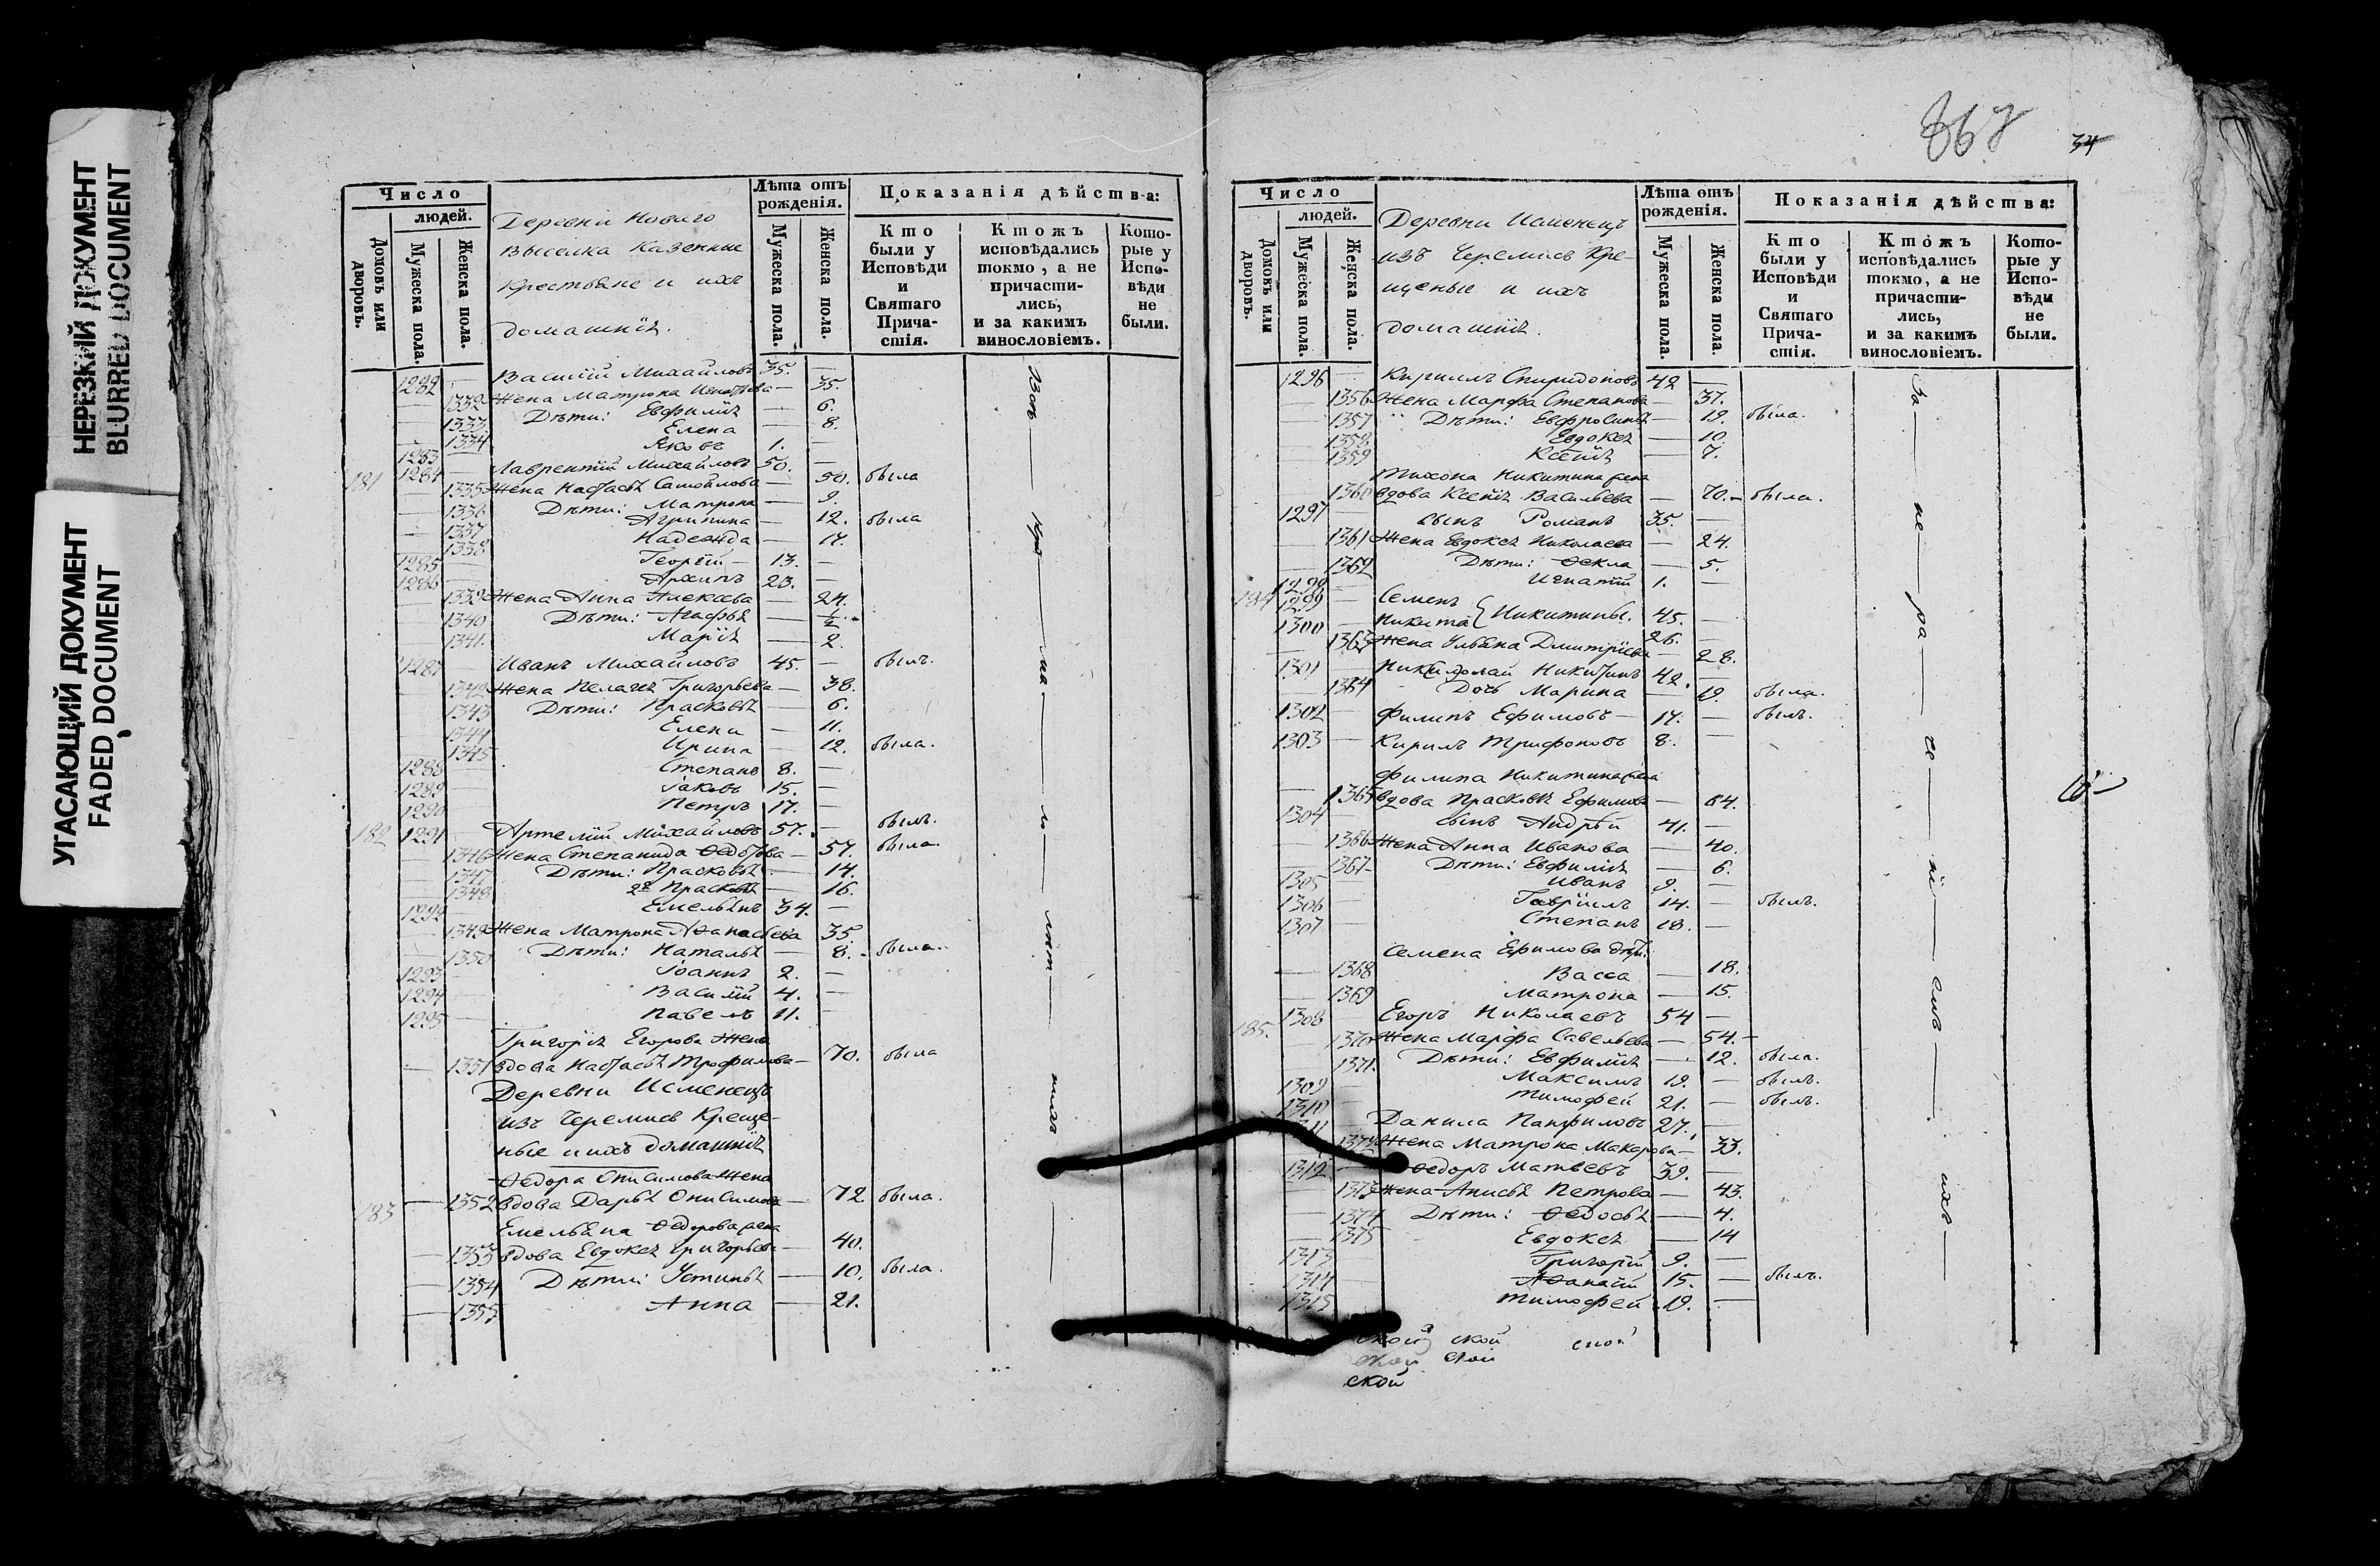 НЕРЕЗКИЙ ДОКУМЕНТ
BLURRED DOCUMENT
УГАСАЮЩИЙ ДОКУМЕНТ
FADED DOCUMENT
Число
людей.
Домовъ или дворовъ.
Мужеска пола.
Женска пола.
Деревни Новаго
выселка Казенные
Крестьяне и ихъ
домашнія.
Лѣта отъ рожденія.
Мужеска пола.
Женска пола.
Показанія дѣйства:
Кто были у Исповѣди и Святаго Причастія.
Ктожъ исповѣдались токмо, а не причастились, и за какимъ винословіемъ.
Которые у Исповѣди не были.
1282 — Василій Михайловъ 35. —
— 1332 Жена Матрона — 35.
— 1333 Дѣти: Евфимія — 6.
— 1334 Елена — 8.
1283 Яковъ 1. —
181 1284 — Лаврентій Михайловъ 50. —
— 1335 Жена Настасья Самойлова — 50. была
— 1336 Дѣти: Матрона — 9.
— 1337 Агрипина — 12. была
— 1338 Надежда — 17.
1285 — Георгій — 13. —
1286 — Архипъ 23. —
— 1339 Жена Анна Алексѣева — 24.
— 1340 Дѣти: Агафья — ½.
— 1341. Марія — 2.
1287 — Иванъ Михайловъ 45. — былъ.
— 1342 Жена Пелагея Григорьева — 38.
— 1343 Дѣти: Прасковья — 6.
— 1344 Елена — 11.
— 1345 Ирина — 12. была.
1288 — Степанъ 8. —
1289 — Іаковъ 15. —
1290 — Петръ 17. —
182 1291 — Артемій Михайловъ 57. — былъ.
— 1346 Жена Степанида Ѳедотова — 57. была.
— 1347 Дѣти: Прасковья — 14.
— 1348 2я Прасковья — 16.
1292 — Емельянъ 34. —
— 1349 Жена Матрона Аѳанасьева 35.
— 1350 Дѣти: Наталья — 8. была.
1293 — Іоаннъ 2. —
1294 — Василій 4. —
1295 — Павелъ 11. —
Григорія Егорова жена
— 1351 вдова Настасья Трофимова — 70. была
Деревни Исменецъ
изъ Черемисъ Креще-
ные и ихъ домашнія
Ѳедора Онисимова жена
183 — 1352 вдова Дарья Онисимова — 72 была.
Емельяна Ѳедорова жена
— 1353 вдова Евдокея Григорьева — 40.
— 1354 Дѣти: Устинья — 10. была.
— 1355 Анна — 21.
34
Число
людей.
Домовъ или дворовъ.
Мужеска пола.
Женска пола.
Деревни Исменецъ
изъ Черемисъ Кре-
щеные и ихъ
домашнія.
Лѣта отъ рожденія.
Мужеска пола.
Женска пола.
Показанія дѣйства:
Кто были у Исповѣди и Святаго Причастія.
Ктожъ исповѣдались токмо, а не причастились, и за какимъ винословіемъ.
Которые у Исповѣди не были.
1296 — Кириллъ Спиридоновъ 42 —
— 1356 Жена Марфа Степанова — 37.
— 1357 Дѣти: Евфросинья — 19. была.
— 1358 Евдокея — 10.
— 1359 Ксенія — 7.
Тихона Никитина жена
— 1360 вдова Ксенія Васильева — 70. — была.
1297 — сынъ Романъ 35. —
— 1361 Жена Евдокея Николаева — 24.
— 1362 Дѣти: Ѳекла — 5.
1298 Игнатій 1. —
184 1299 — Семенъ
1300 Никита } Никитины. 45. —
— 1363 Жена Ульяна Дмитріева 26. — 28.
1301 — Николай Никитинъ 42. —
— 1364 Дочь Марина — 19. была.
1302 — Филипъ Ефимовъ — 17. — былъ.
1303 — Кирилъ Трифоновъ 8. —
Филипа Никитина жена
— 1365 вдова Прасковья Ефимова — 64.
1304 — сынъ Андрей 41. —
— 1366 Жена Анна Иванова — 40.
— 1367 Дѣти: Евфимія — 6.
1305 — Иванъ 9. —
1306 — Гавріилъ 14. — былъ.
1307 — Степанъ 18. —
Семена Ефимова дѣти:
— 1368 Васса — 18.
— 1369 Матрона — 15.
185. 1308 — Егоръ Николаевъ 54 —
— 1370 Жена Марфа Савельева — 54. —
1371. Дѣти: Евфимія — 12. была.
1309 — Максимъ 19. — былъ.
1310 — Тимофей 21. — былъ.
Данила Панфиловъ 27. —
1372 Жена Матрона Макарова — 33.
1312 — Ѳедоръ Матвеевъ 39. —
— 1373 Жена Анисья Петрова — 43.
— 1374 Дѣти: Ѳедосья — 4.
— 1375 Евдокея — 14
1313 — Григорій 9. —
1314 — Аѳанасій 15. — былъ.
1315 Тимофей 19. —
ской ской ской
ской ской
ской